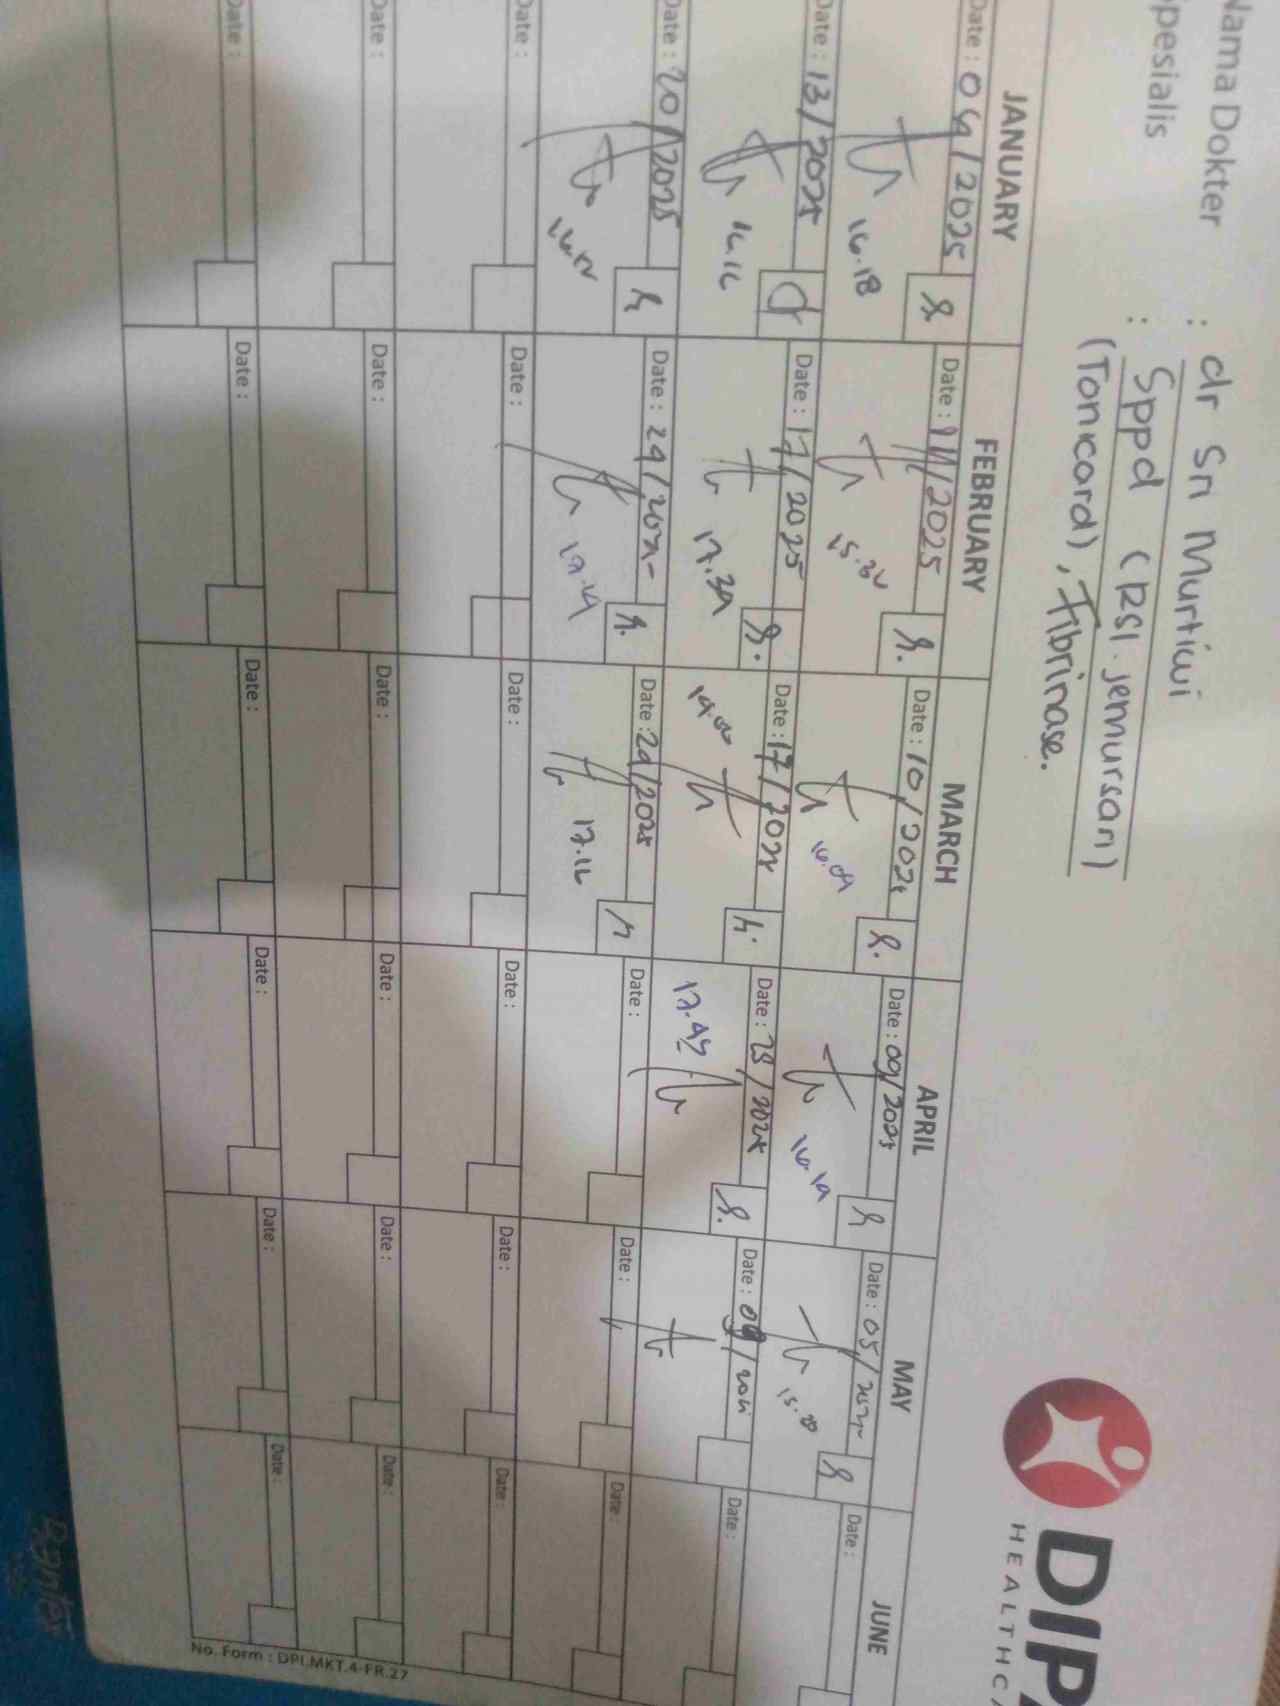 Nama Dokter : dr Sri Murtiwi
Spesialis : Sppd (RSI. jemursari)
(Tonicard), Fibrinase.
DIPA
HEALTHCA
JANUARY FEBRUARY MARCH APRIL MAY JUNE
Date: 09/2025 Date: /2025 Date: 10/2025 Date: 09/2025 Date: 05/2025 Date:
16.18 15.32 16.09 16.19 15.20
Date: 13/2025 Date: 17/2025 Date: 17/2025 Date: 28/2025 Date: 09/2025 Date:
16.16 17.39 19.00 17.47
Date: 20/2025 Date: 24/2025 Date: 24/2025 Date: Date: Date:
16.12 19.19 17.16
Date: Date: Date: Date: Date: Date:
Date: Date: Date: Date: Date: Date:
Date: Date: Date: Date: Date: Date:
No. Form : DPI.MKT.4-FR.27